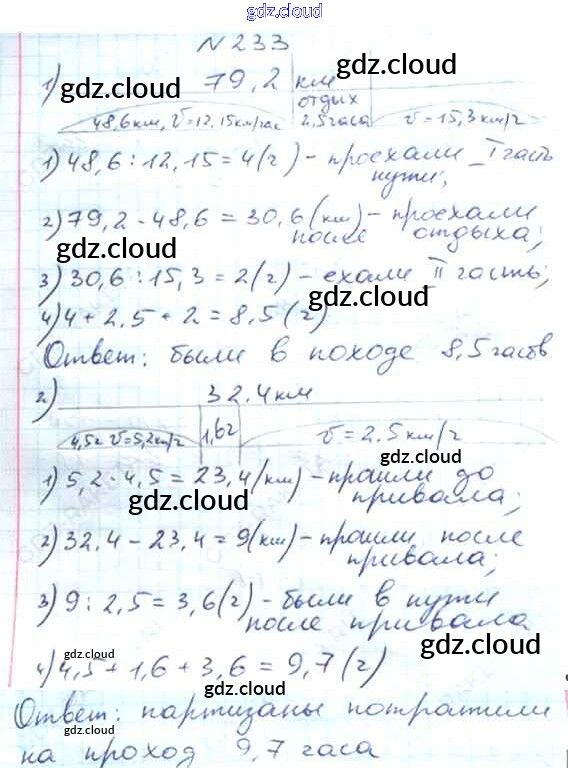 gdz.cloud
N 233
1) 79,2 км
gdz.cloud
gdz.cloud
отдых
48,6км, v=12,15км/час 2,5часа v=15,3км/ч
gdz.cloud
gdz.cloud
1) 48,6 : 12,15 = 4(ч) - проехали I часть
пути;
2) 79,2 - 48,6 = 30,6 (км) - проехали
после отдыха;
gdz.cloud
gdz.cloud
3) 30,6 : 15,3 = 2(ч) - ехали II часть;
gdz.cloud
4) 4 + 2,5 + 2 = 8,5 (ч)
Ответ: были в походе 8,5 часов
gdz.cloud
2) 32,4км
4,5ч v=5,2км/ч 1,6ч v=2,5км/ч
gdz.cloud
1) 5,2 · 4,5 = 23,4(км) - прошли до
привала;
gdz.cloud
2) 32,4 - 23,4 = 9(км) - прошли после
привала;
3) 9 : 2,5 = 3,6(ч) - были в пути
после привала
gdz.cloud
gdz.cloud
4) 4,5 + 1,6 + 3,6 = 9,7(ч)
gdz.cloud
Ответ: партизаны потратили
gdz.cloud
на проход 9,7 часа